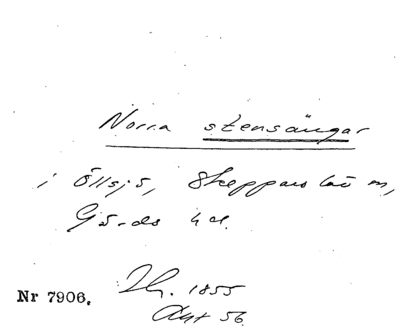 Norra stensängar
i Öllsjö, Skepparslöv m,
Gärds hd.
Nr 7906. 1855
56